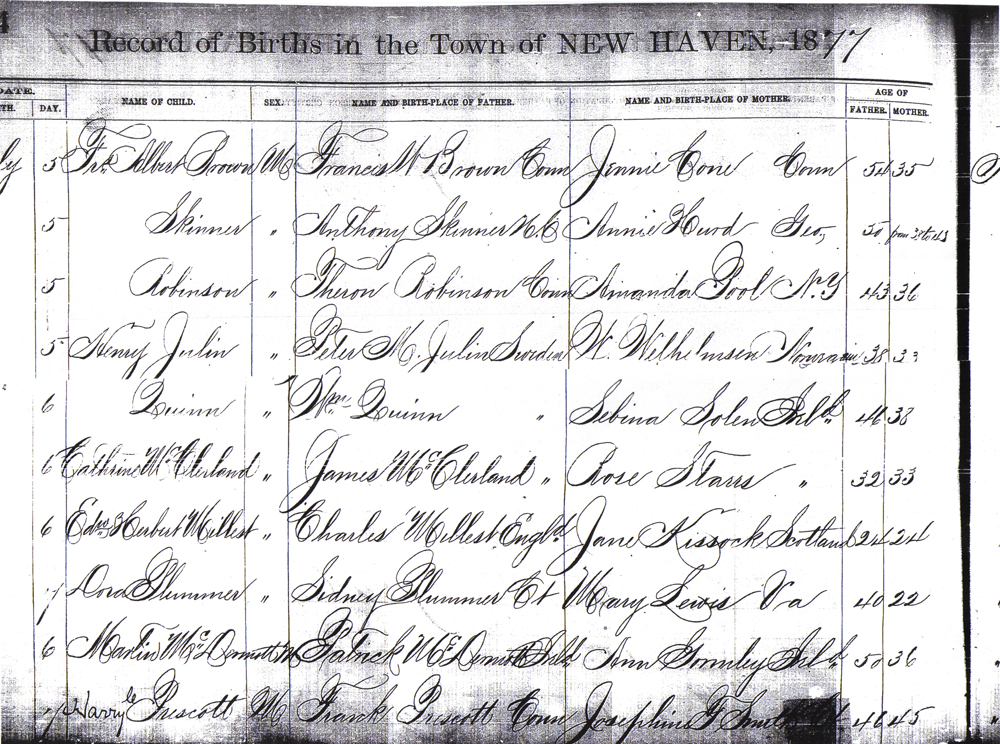 4
Record of Births in the Town of NEW HAVEN, 1877
DATE. AGE OF
TH. DAY. NAME OF CHILD. SEX. NAME AND BIRTH-PLACE OF FATHER. NAME AND BIRTH-PLACE OF MOTHER. FATHER. MOTHER.
ly 5 Frk Albert Brown M Francis W Brown Conn Jennie Cone Conn 54 35
5 Skinner " Anthony Skinner N.C Annie Hurd Geo, 50
5 Robinson " Theron Robinson Conn Amanda Pool N.Y 43 36
5 Henry Julin " Peter M. Julin Sweden W. Welhelmsen 38 33
6 Quinn " Wm Quinn " Sebina Solen Irld 46 38
6 Cathrine McClerland " James McClerland " Rose Starrs " 32 33
6 Edw Herbert Millest " Charles Millest Engld Jane Kissock Scotland 24 24
7 Dora Plummer " Sidney Plummer Ct Mary Lewis Va 40 22
6 Martin McDermott M Patrick McDermott Irld Ann Gormley Irld 50 36
7 Harry Prescott M Frank Prescott Conn Josephine F 46 45